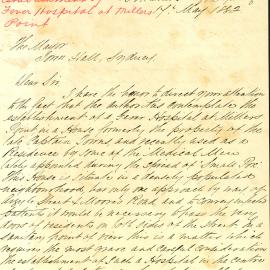 Fever Hospital at Millers
Point
7th May 1882
The Mayor
Town Hall, Sydney
Dear Sir
I have the honor to direct your attention
to the fact that the authorities contemplate the
establishment of a Fever Hospital at Millers
Point in a House formerly the property of the
late Captain Towns, and recently used as a
Residence by one of the Medical Men
lately appointed during the spread of Small Pox
This House is situate in a densely populated
neighbourhood, has only one approach by way of
Argyle Street & Moore's Road and to convey
patients it would be necessary to pass the very
doors of residents on both sides of the Street. In a
sanitary point of view this is a matter which
requires the most grave and careful consideration
the establishment of such a Hospital in the centre